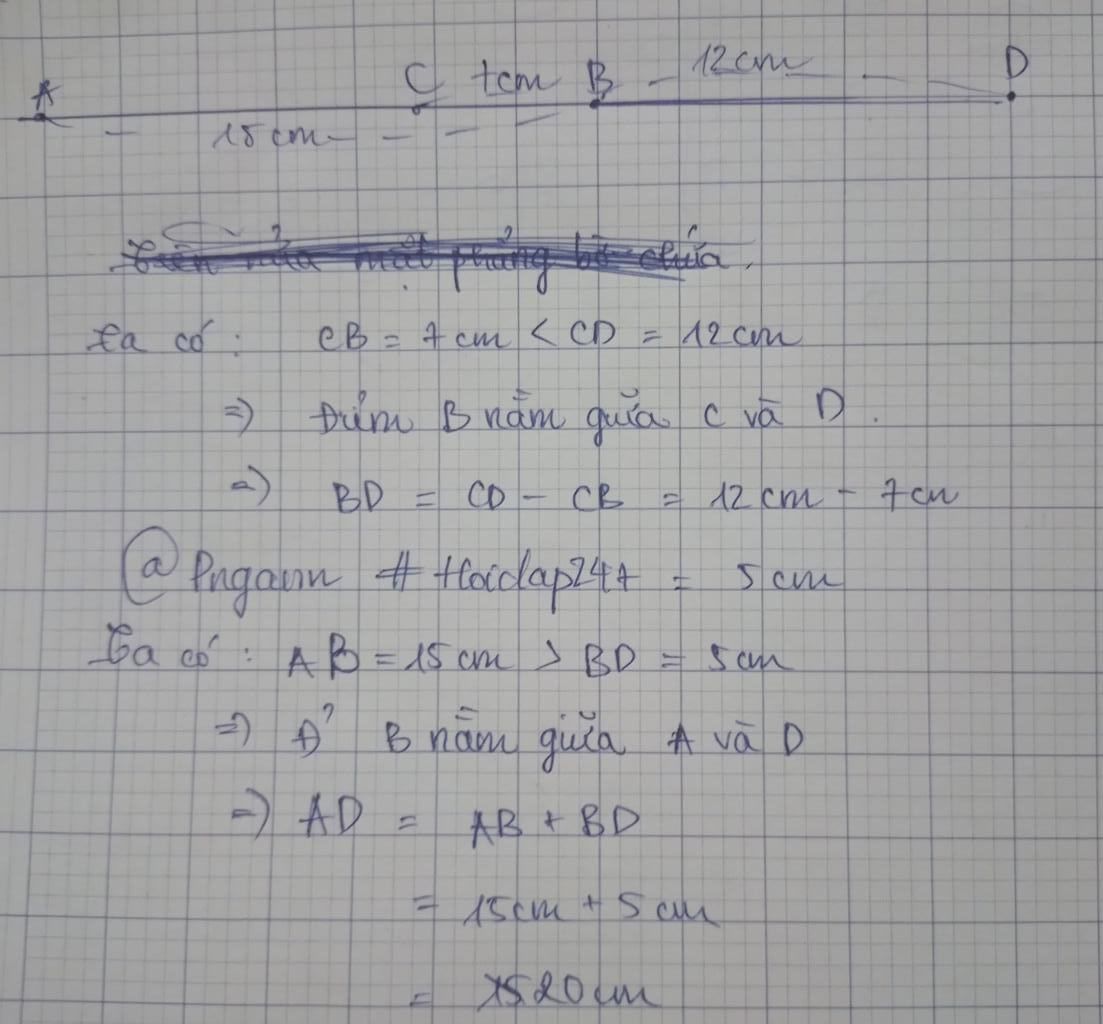 A C 7cm B 12cm D
15cm
Trên nửa mặt phẳng bờ chứa
Ta có: CB = 7cm < CD = 12cm
=> Điểm B nằm giữa C và D.
=> BD = CD - CB = 12cm - 7cm
@Pngann # Hoidap247 = 5cm
Ta có: AB = 15cm > BD = 5cm
=> Đ' B nằm giữa A và D
=> AD = AB + BD
= 15cm + 5cm
= 20cm